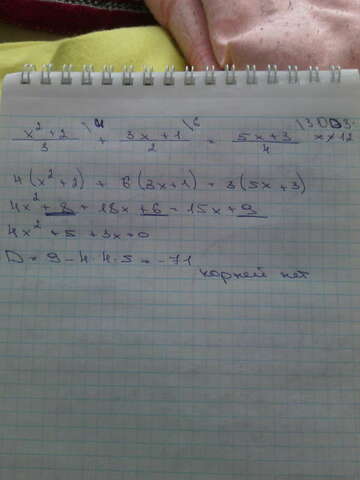 x²+2/3 \4 + 3x+1/2 \6 = 5x+3/4 \3 ОДЗ:
4(x²+2) + 6(3x+1) = 3(5x+3)
4x²+8+18x+6=15x+9
4x²+5+3x=0
D=9-4·4·5=-71
корней нет